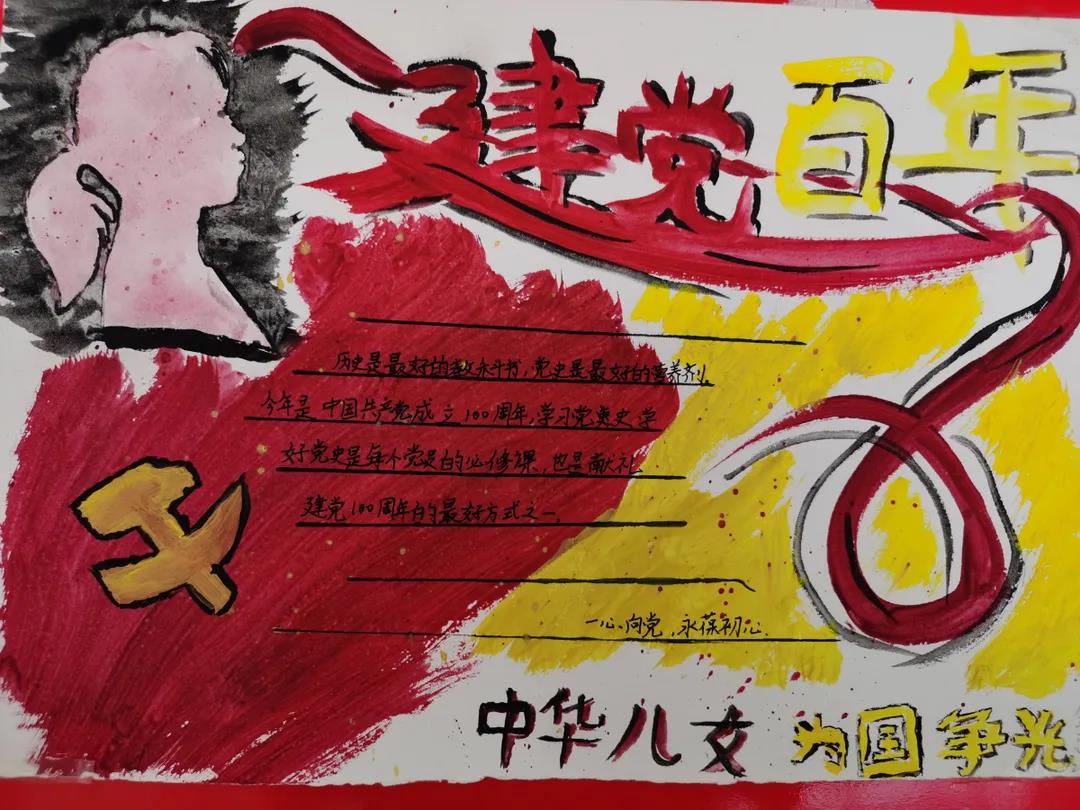 建党百年
历史是最好的教科书,党史是最好的营养剂。
今年是中国共产党成立100周年,学习党史学
好党史是每个党员的必修课,也是献礼
建党100周年的最好方式之一。
一心向党,永葆初心.
中华儿女 为国争光